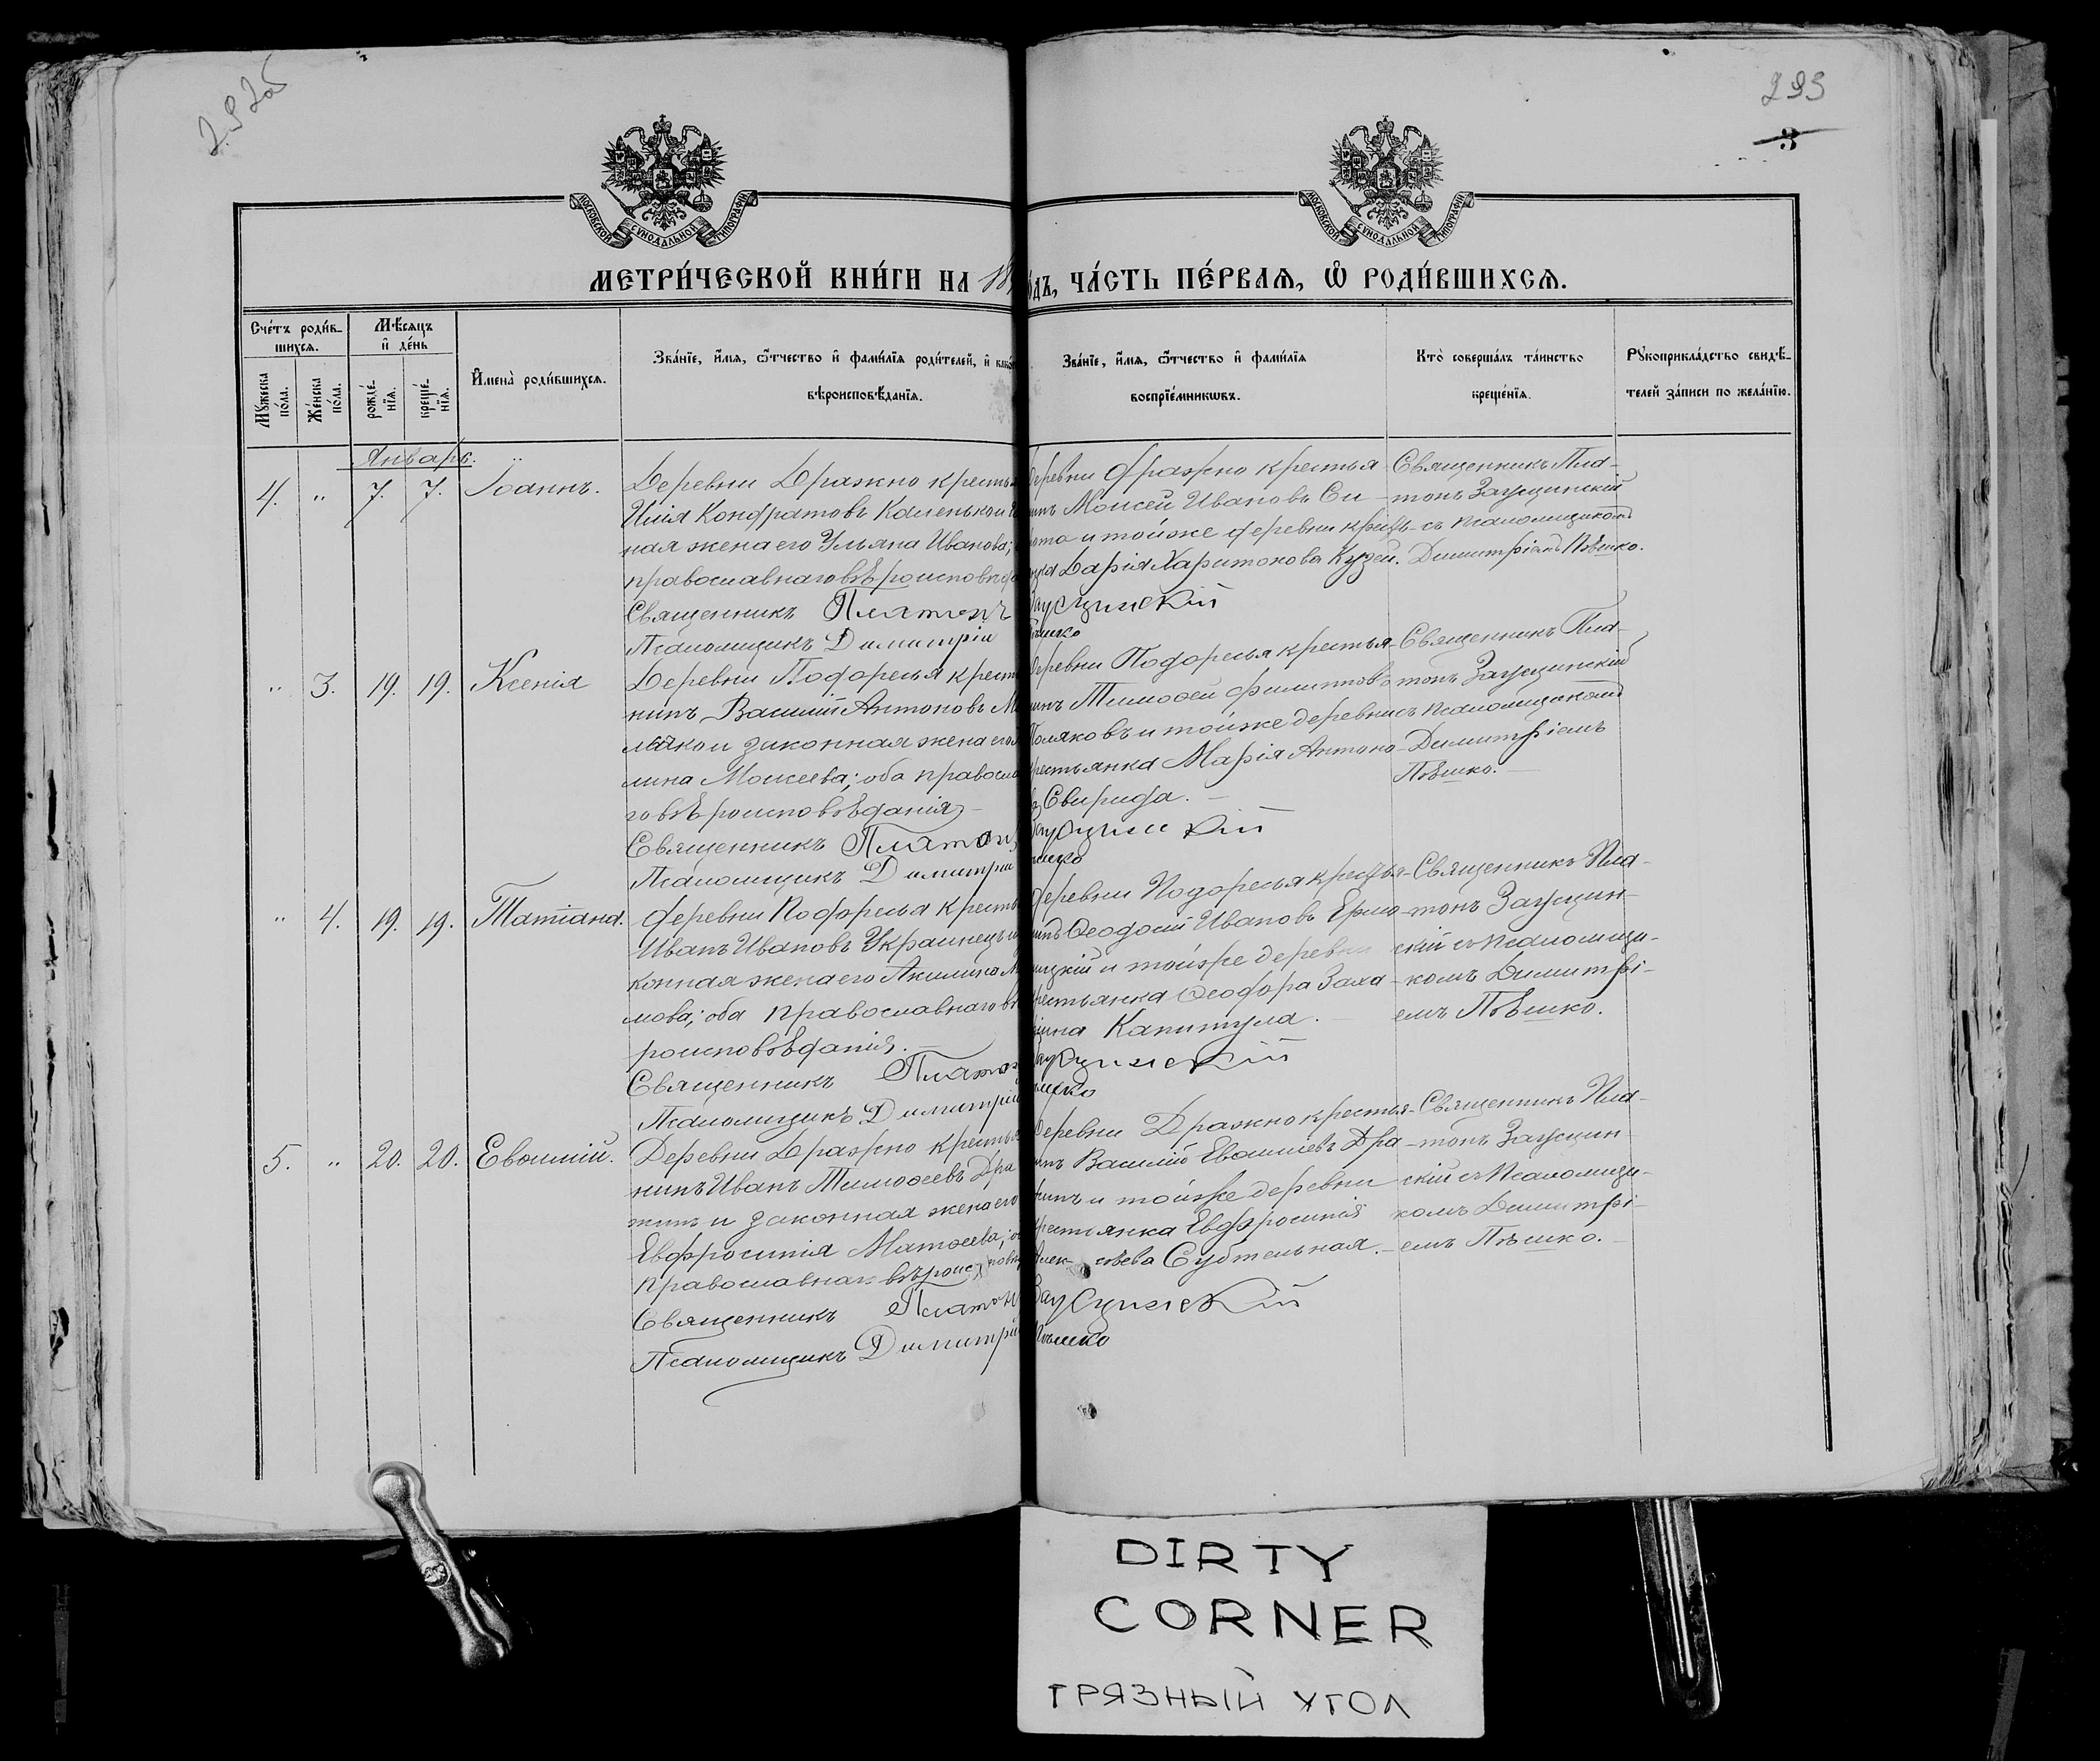 292об
293
3
МОСКОВСКОЙ СѴНОДАЛЬНОЙ ТИПОГРАФІИ
МОСКОВСКОЙ СѴНОДАЛЬНОЙ ТИПОГРАФІИ
МЕТРИ́ЧЕСКОЙ КНИ́ГИ НА 18
о́дъ, ЧА́СТЬ ПЕ́РВАѦ, Ѡ҆ РОДИ́ВШИХСѦ.
Сче́тъ роди́в-
шихсѧ.
Мꙋ́жеска по́ла.
Же́нска по́ла.
Мѣ́сѧцъ и҆ де́нь
рожде́-нїѧ.
креще́-нїѧ.
И҆мена̀ роди́вшихсѧ.
Зва́нїе, и҆́мѧ, ѻ҆́тчество и҆ фами́лїѧ роди́телей, и҆ како
вѣроисповѣ́данїѧ.
Зва́нїе, и҆́мѧ, ѻ҆́тчество и҆ фами́лїѧ
воспрїе́мникѡвъ.
Кто̀ соверша́лъ та́инство
креще́нїѧ.
Рꙋкоприкла́дство свидѣ́-
телей за́писи по жела́нїю.
Январь.
4. " 7. 7. Іоаннъ.
Деревни Дражно крестья
Илія Кондратовъ Каленькои
ная жена его Ульяна Иванова;
православнаго вѣроисповѣд
Священникъ Платонъ
Псаломщикъ Димитрій
деревни Дражно крестья-
инъ Моисей Ивановъ Си-
рота и тойже деревни кресть-
янка Дарія Харитонова Кузей.
Заусцинскій
Пѣшко
Священникъ Пла-
тонъ Заусцинскій
съ псаломщикомъ
Димитріемъ Пѣшко.
" 3. 19. 19. Ксенія
Деревни Подоресья крест
нинъ Василій Антоновъ М
ляко и законная жена его
лина Моисеева; оба правосла
го вѣроисповѣданія
Священникъ Платонъ
Псаломщикъ Димитрій
Деревни Подоресья крестья-
инъ Тимоѳей Филипповъ
Поляковъ и тойже деревни
крестьянка Марія Антоно-
ва Свирида.
Заусцинскій
Пѣшко
Священникъ Пла-
тонъ Заусцинскій
съ псаломщикомъ
Димитріемъ
Пѣшко.
" 4. 19. 19. Татіана.
Деревни Подоресья кресть
Иванъ Ивановъ Украинецъ и
конная жена его Акилина М
мова; оба православнаго вѣ
роисповѣданія.
Священникъ Платонъ
Псаломщикъ Димитрій
Деревни Подоресья крестья-
инъ Ѳеодосій Ивановъ Ермо-
ицкій и тойже деревни
крестьянка Ѳеодора Заха-
ріина Капитула.
Заусцинскій
Пѣшко
Священникъ Пла-
тонъ Заусцин-
скій съ псаломщи-
комъ Димитрі-
емъ Пѣшко.
5. " 20. 20. Евѳимій.
Деревни Дражно крестья
нинъ Иванъ Тимоѳеевъ Дра
жинъ и законная жена его
Евфросинія Матѳеева;
православнаго вѣроисповѣ
Священникъ Платонъ
Псаломщикъ Димитрій
Деревни Дражно крестья-
инъ Василій Евѳиміевъ Дра-
жинъ и тойже деревни
крестьянка Евфросинія
Алексѣева Субтельная.
Заусцинскій
Пѣшко
Священникъ Пла-
тонъ Заусцин-
скій съ псаломщи-
комъ Димитрі-
емъ Пѣшко.
DIRTY
CORNER
ГРЯЗНЫЙ УГОЛ